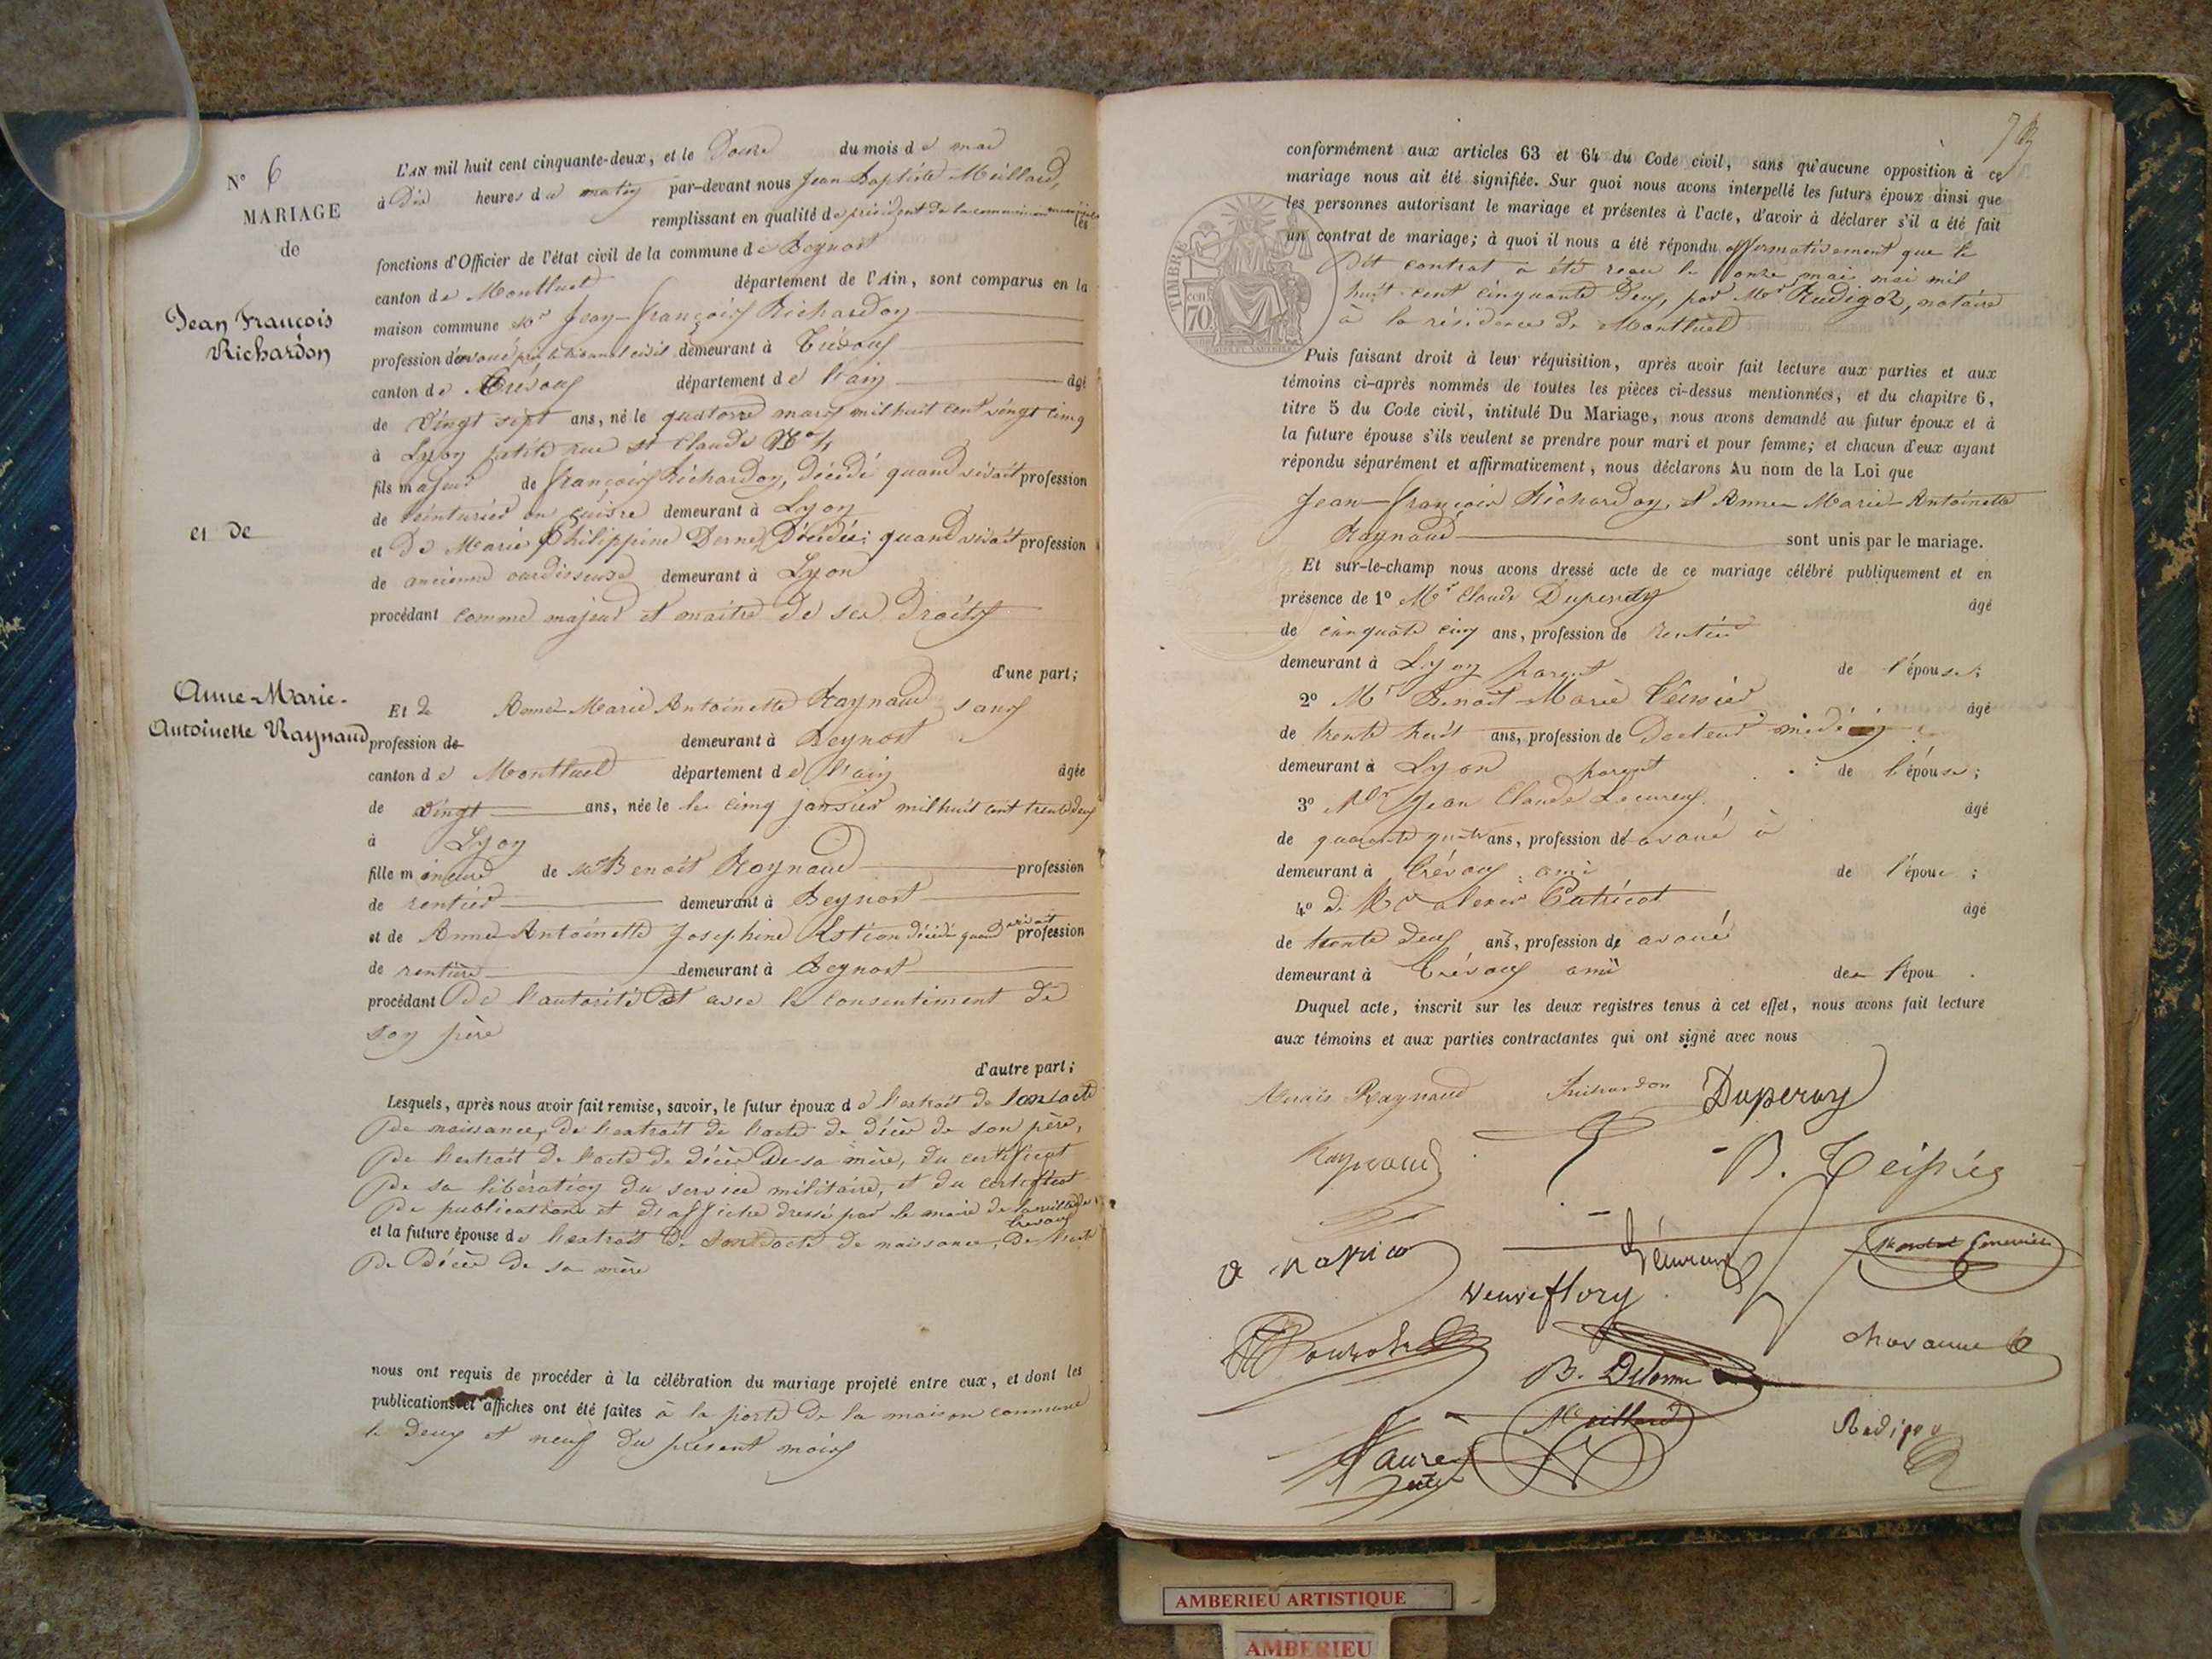 N° 6
MARIAGE
de
Jean François
Richardon
et de
Anne-Marie-
Antoinette Raynaud
L'AN mil huit cent cinquante-deux, et le Douze du mois de mai
à Dix heures du matin par-devant nous Jean Baptiste Meillard,
remplissant en qualité de président de la commission municipale les
fonctions d'Officier de l'état civil de la commune de Beynost
canton de Montluel département de l'Ain, sont comparus en la
maison commune Mr Jean-François Richardon
profession d'avoué près le tribunal civil demeurant à Trévoux
canton de Trévoux département de l'ain âgé
de Vingt sept ans, né le quatorze mars mil huit cent vingt cinq
à Lyon petite rue St Claude
fils majeur de François Richardon, décédé quand vivait profession
de teinturier en cuivre demeurant à Lyon
et De Marie Philippine Derne, Décédée; quand vivait profession
de ancienne ourdisseuse demeurant à Lyon
procédant comme majeur et maitre de ses droits
d'une part;
Et de Anne-Marie Antoinette Raynaud sans
profession de demeurant à Beynost
canton de Montluel département de l'ain âgée
de vingt ans, née le le cinq janvier mil huit cent trente deux
à Lyon
fille mineure de Mr Benoit Raynaud profession
de rentier demeurant à Beynost
et de Anne Antoinette Josephine Astion décédée quand vivait profession
de rentière demeurant à Beynost
procédant De l'autorité et avec le consentement de
son père
d'autre part;
Lesquels, après nous avoir fait remise, savoir, le futur époux de l'extrait de son acte
De naissance, de l'extrait de l'acte de décès de son père,
De l'extrait de l'acte de décès de sa mère, du certificat
De sa libération du service militaire, et du certificat
De publications et d'affiche dressé par le maire de la ville de
Trévoux
et la future épouse de l'extrait de son acte de naissance, De l'acte
De Décès de sa mère
nous ont requis de procéder à la célébration du mariage projeté entre eux, et dont les
publications et affiches ont été faites à la porte de la maison commune
le deux et neuf du présent mois
conformément aux articles 63 et 64 du Code civil, sans qu'aucune opposition à ce
mariage nous ait été signifiée. Sur quoi nous avons interpellé les futurs époux ainsi que
les personnes autorisant le mariage et présentes à l'acte, d'avoir à déclarer s'il a été fait
un contrat de mariage; à quoi il nous a été répondu affirmativement que le
dit contrat a été reçu le onze mai mil
huit cent cinquante deux, par Mr Rudigoz, notaire
à la résidence de Montluel
TIMBRE
70 cen
Puis faisant droit à leur réquisition, après avoir fait lecture aux parties et aux
témoins ci-après nommés de toutes les pièces ci-dessus mentionnées, et du chapitre 6,
titre 5 du Code civil, intitulé Du Mariage, nous avons demandé au futur époux et à
la future épouse s'ils veulent se prendre pour mari et pour femme; et chacun d'eux ayant
répondu séparément et affirmativement, nous déclarons Au nom de la Loi que
Jean-François Richardon, et Anne-Marie-Antoinette
Raynaud sont unis par le mariage.
Et sur-le-champ nous avons dressé acte de ce mariage célébré publiquement et en
présence de 1° Mr Claude Duperray âgé
de cinquante cinq ans, profession de rentier
demeurant à Lyon parent de l'épouse;
2° Mr Benoit-Marie Teissier âgé
de trente huit ans, profession de Docteur médecin
demeurant à Lyon parent de l'épouse;
3° Mr Jean Claude Lecureux âgé
de quarante quatre ans, profession de avoué à
demeurant à Trévoux ami de l'épou ;
4° de Mr alexis Patricot âgé
de trente deux ans, profession de avoué
demeurant à Trévoux ami des l'épou .
Duquel acte, inscrit sur les deux registres tenus à cet effet, nous avons fait lecture
aux témoins et aux parties contractantes qui ont signé avec nous
Raynaud Richardon Duperay
Raynaud B. Teissier
Lécureux
Veuve flory
Chavanne
B. Delorme
Meillard
Faure
Rudigoz
AMBERIEU ARTISTIQUE
AMBERIEU